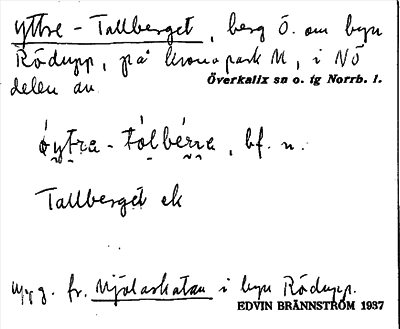 Yttre - Tallberget, berg Ö. om byn
Rödupp, på kronopark M, i NÖ
delen av
Överkalix sn o. tg Norrb. l.
óytra - tòlbérra, bf. n.
Tallberget ek
Uppg. fr. Mjölaskatan i byn Rödupp.
EDVIN BRÄNNSTRÖM 1937